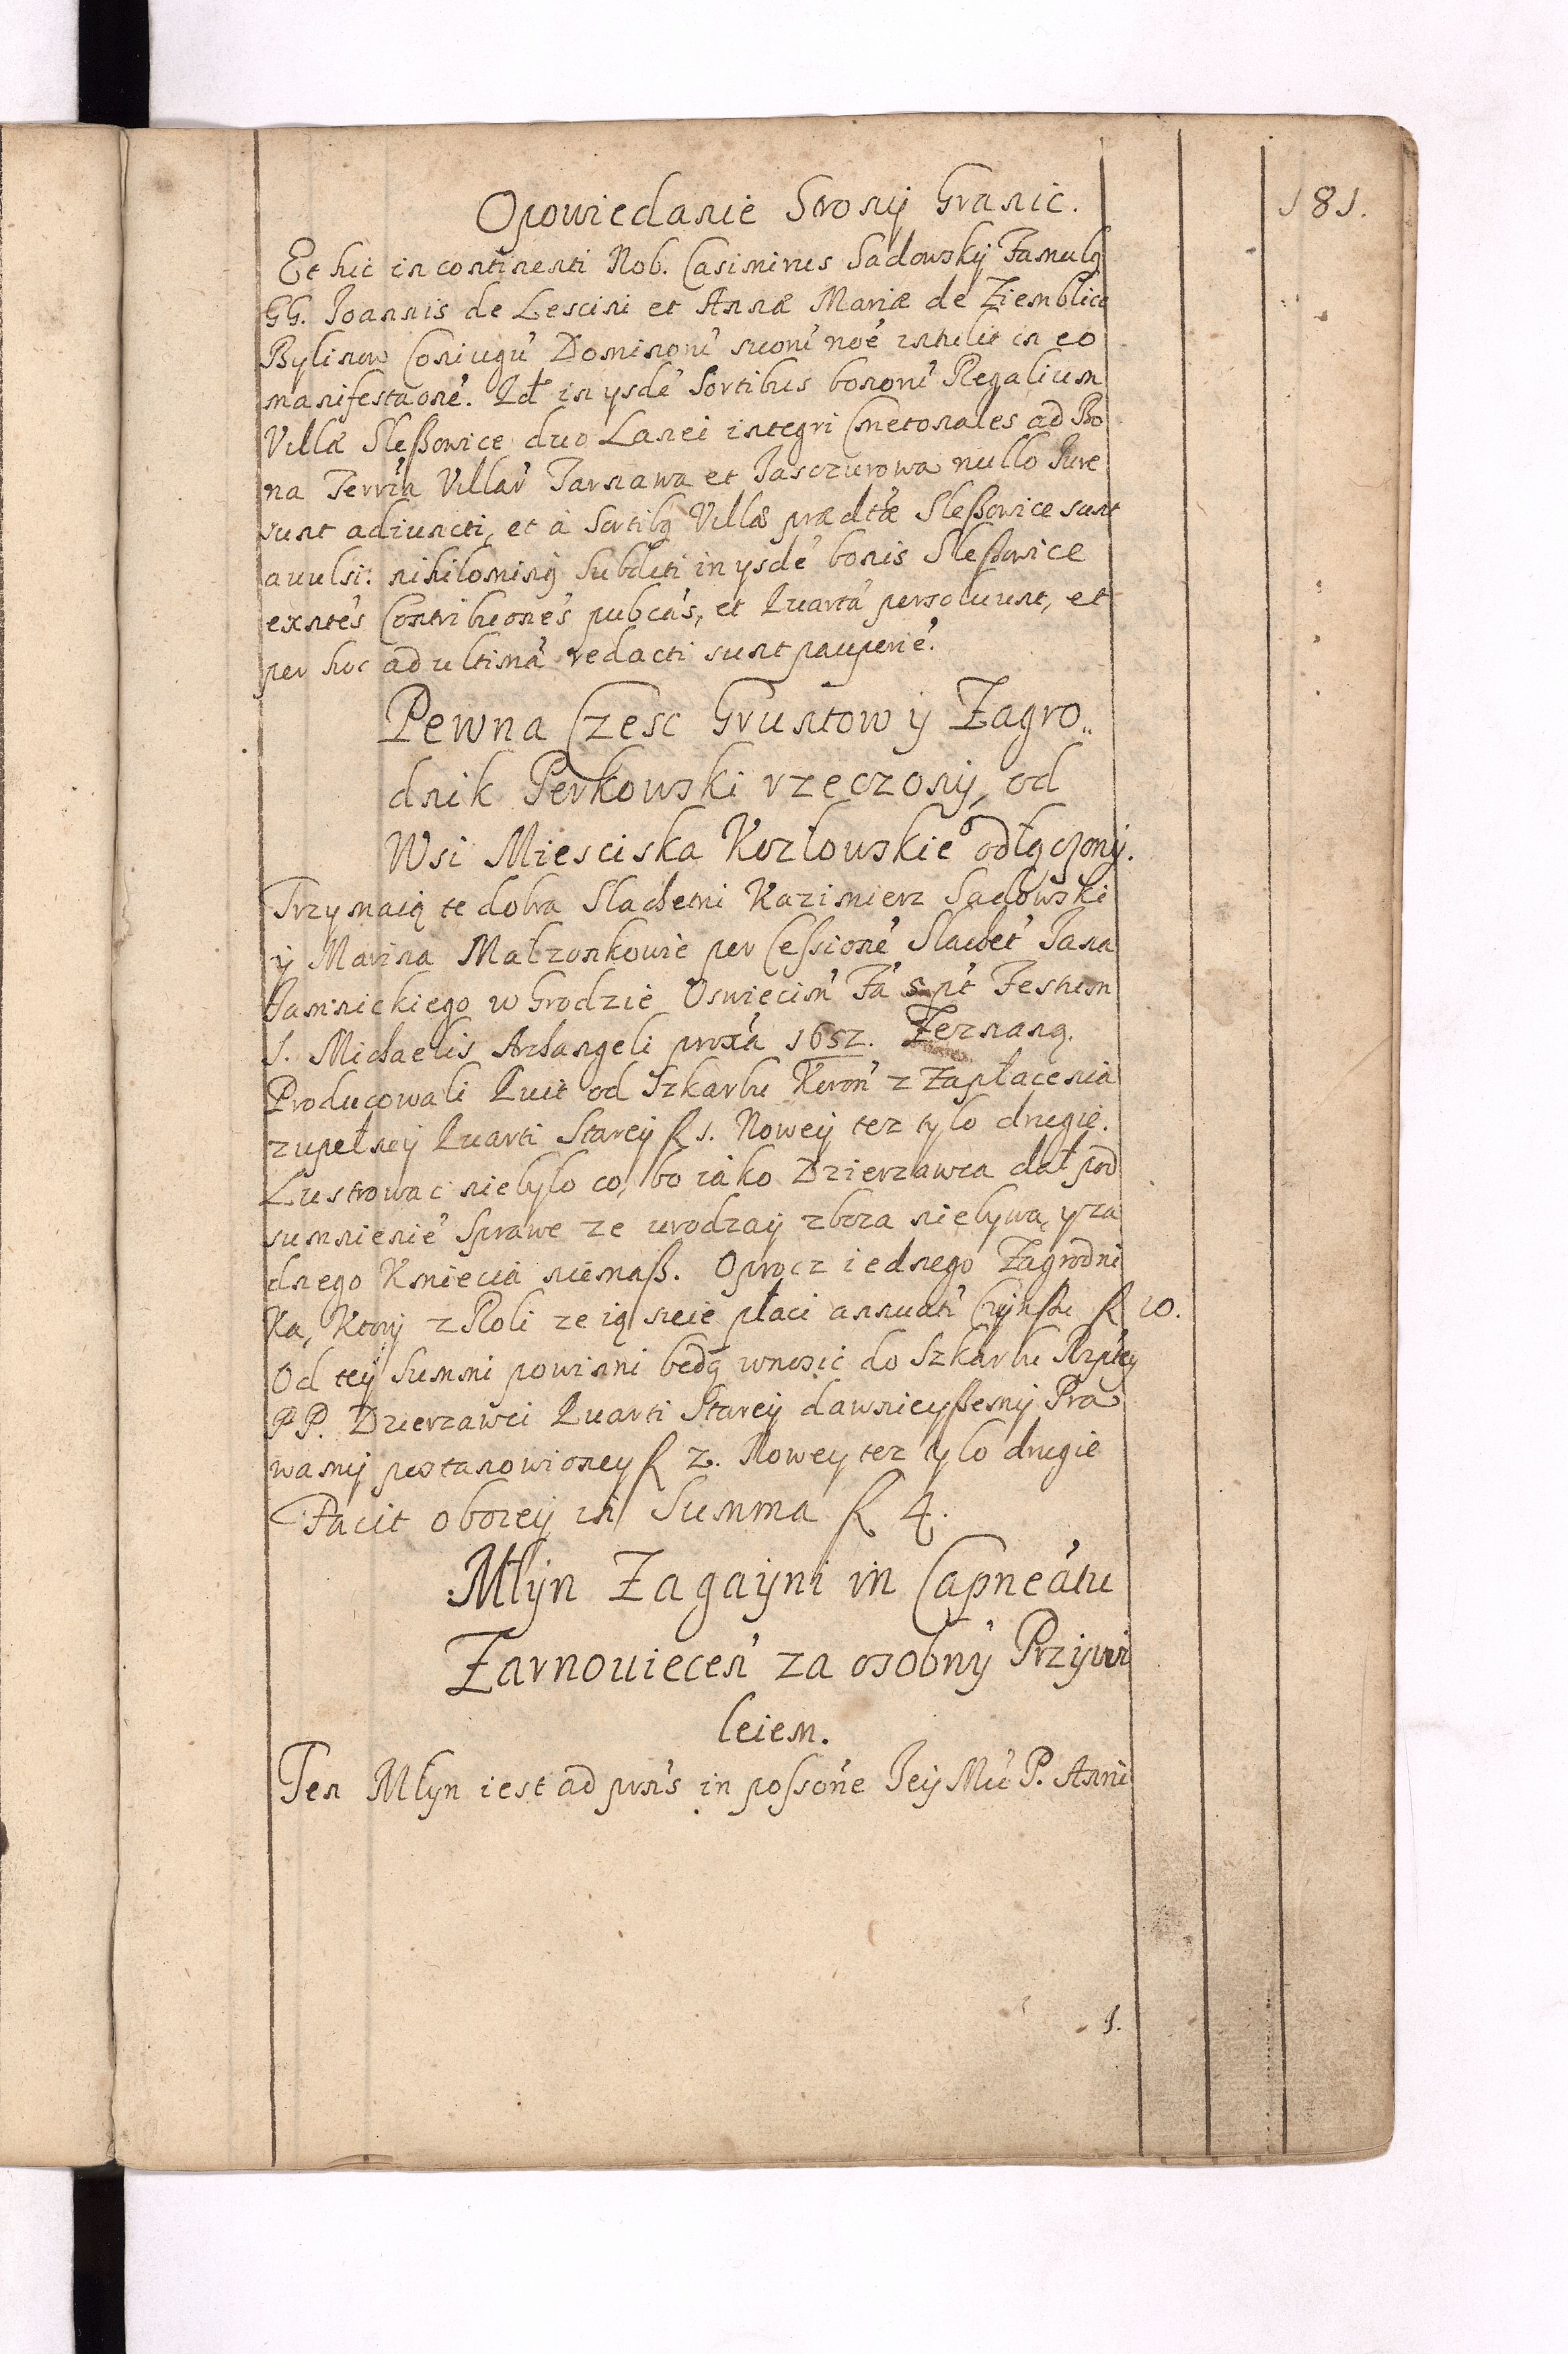 181.
Opowiedanie Strony Granic.
Et hic in continenti Nob. Casimirus Sadowsky Famulq
GG. Joannis de Lescini et Annæ Mariæ de Ziemblice
Bylinow Coniugu' Dominoru' suoru' noe' intulit in eo
manifestaone'. Qd in ysde' Sortibus bonoru' Regalium
Villæ Sleßowice duo Lanei integri Cmetonales ad Bo
na Terrꝛ'ia Villar' Tarnawa et Jasczurowa nullo Jure
sunt adiuncti, et à Sortibq Villæ prædtæ Sleßowice sunt
auulsi: nihilominq Subditi in ysde' bonis Sleßowice
exntes Contribuones pubcas, et Quarta' persoluunt, et
per hoc ad ultima' redacti sunt pauperie'.
Pewna Czesc Gruntow y Zagro„
dnik Perkowski rzeczony, od
Wsi Miesciska Kozłowskieº odłączony.
Trzymaią te dobra Slachetni Kazimierz Sadowski
y Marina Małzonkowie per Cessione' Slachet' Jana
Jamnickiego w Grodzie Oswiecim' Fa' 5 pt' Festum
S. Michaelis Archangeli proxa 1652. Zeznaną.
Producowali Quit od Szkarbu Koron' z Zapłacenia
zupełney Quarti Starey f 1. Nowey tez tylo drugie.
Lustrowac niebylo co, bo iako Dzierzawca dał pod
sumnienie' Sprawe ze urodzay zboza niebywa, y za
dnego Kmiecia niemaß. Oprocz iednego Zagrodni
Ka, Ktory z Roli ze ią sieie płaci annuati' Czynßu f 10.
Od tey Summi powinni będą wnosic do Szkarbu Rzptey
PP. Dzierzawci Quarti Starey dawnieyßemy Pra
wamy postanowioney f 2. Nowey tez tylo drugie
Facit oboiey in Summa f 4.
Mlyn Zagayni in Capneatu
Zarnouiecen' za osobny Przywi
leiem.
Ten Mlyn iest ad prns in possone Jey Mci P. Anni
1.